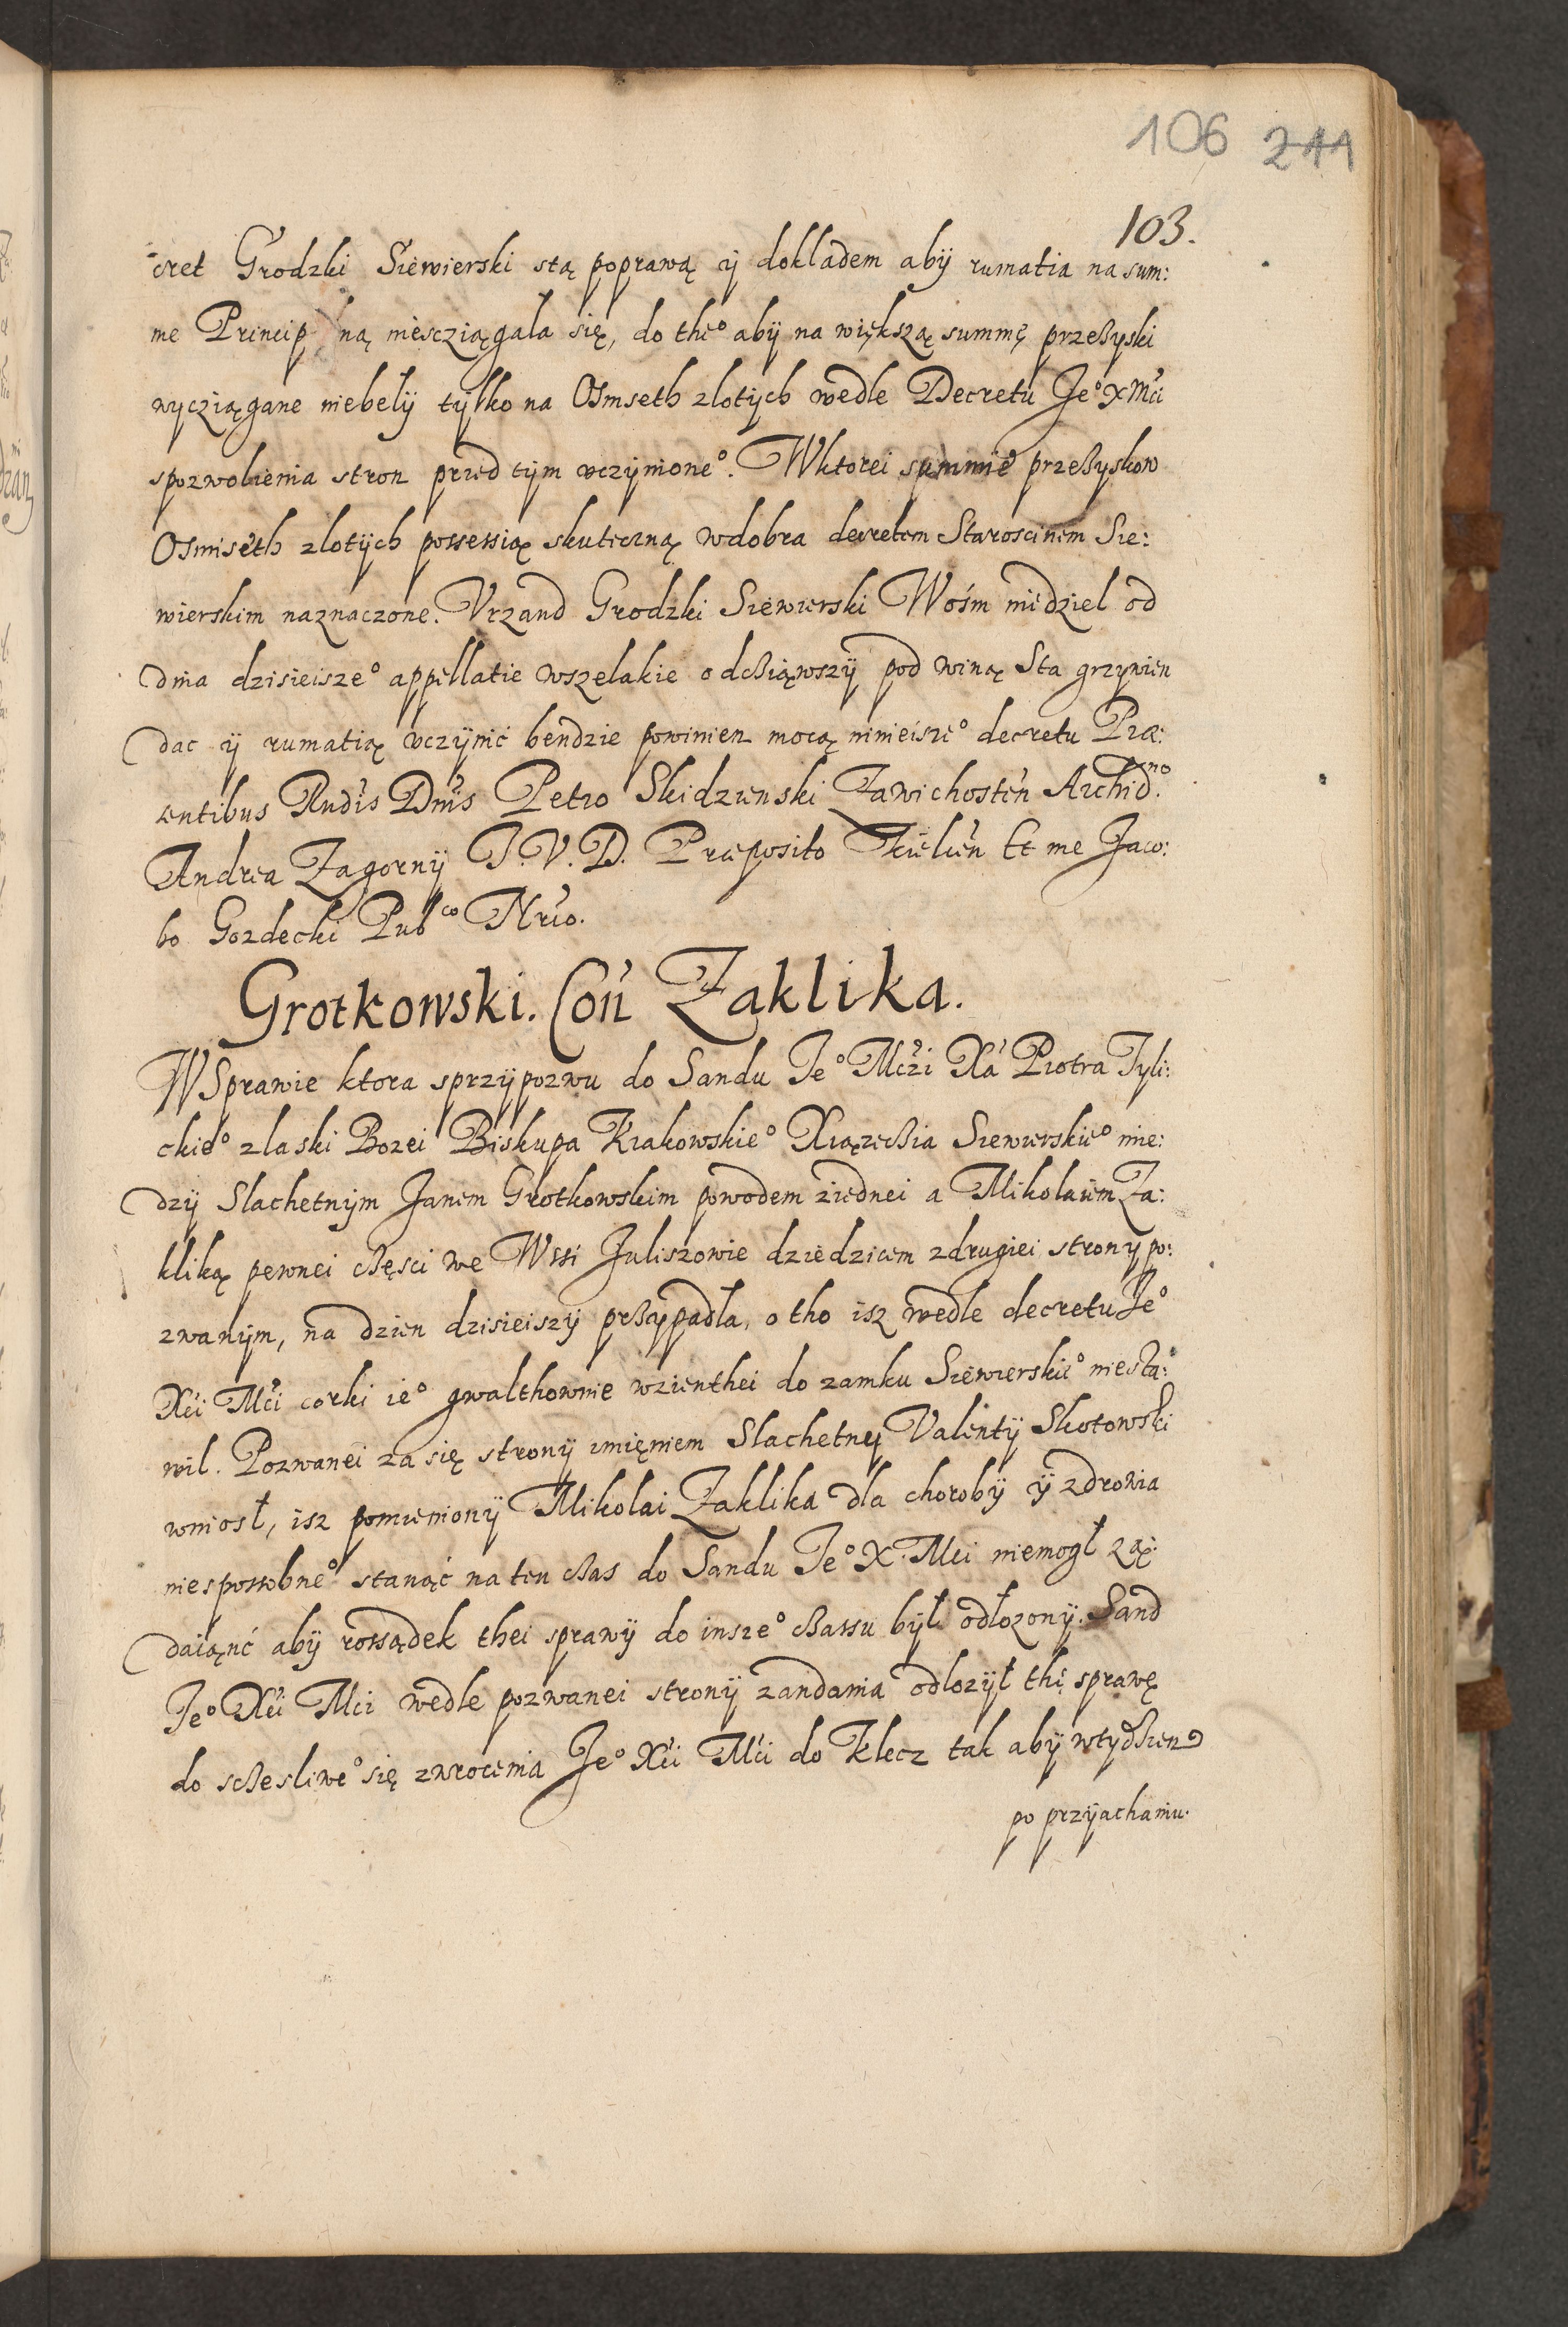 106 211
103.
cret Grodzki Siewierski stą poprawą ÿ dokladem abÿ rumatia na sum:
me Princip ną niesczjągala się, do the° abÿ na większą summę przeßyski
wycziągane niebelÿ tÿlko na Osmseth zlotÿch wedle Decretu Je° X Mći
spozwolienia stron przed tÿm vczÿnione°. Wktorei summie przeßyskow
Osmiseth zlotÿch possessią skuteczną wdobra decretem Staroscinem Sie:
wierskim naznaczone. Vrzand Grodzki Siewierski Wośm niedziel od
dnia dzisieisze° appellatie wszelakie odcßiąwszÿ pod winą Sta grzywien
dac ÿ rumatią vczÿnić bendzie powinien mocą ninieisze° decretu Præ:
sentibus Rndis Dnis Petro Skidzienski Zawichosten Archid.no
Andrea Zagornÿ J. V. D. Præposito Kielcen Et me Jaco:
bo Gozdecki Pubco Nrio.
Grotkowski. Con Zaklika.
WSprawie ktora sprzÿpozwu do Sandu Je° Mczi Xa Piotra Tyli:
ckie° zlaski Bozei Biskupa Krakowskie° Xiązećßia Siewierskie° mie:
dzÿ Slachetnÿm Janem Grotkowskim powodem ziednei a Mikolaiem Za:
kliką pewnei cßęsci we Wssi Juliszowie dziedzicem zdrugiei stronÿ po:
zwanÿm, na dzien dzisieiszÿ prßÿpadła, o tho isz wedle decretu Je°
Xći Mći corki ie° gwalthownie wzienthei do zamku Siewierskie° niesta:
wil. Pozwanei za się stronÿ imięniem Slachetnÿ Valentÿ Skotowski
wniosł, isz pomienionÿ Mikolai Zaklika dla chorobÿ ÿ zdrowia
niespossobne° stanąć na ten cßas do Sandu Je° X. Mci niemogł zą:
daiąnć abÿ rossądek thei sprawÿ do insze° cßassu bÿł odłozonÿ. Sand
Je° Xći Mći wedle pozwanei stronÿ zandania odlozÿł thę sprawę
do scßesliwe° się zwrocenia Je° Xći Mći do Klecz tak abÿ wtÿdßien
po przÿachaniu.